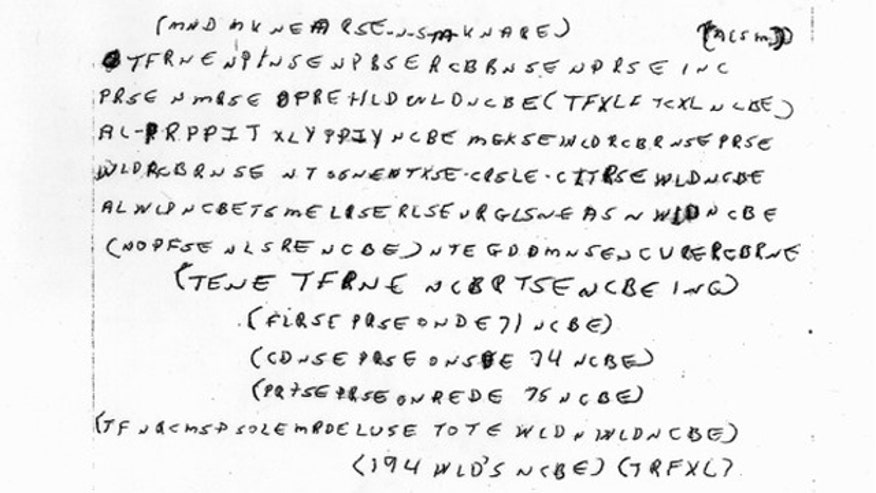 (MND MKNEARSE-N-S-M-KNARE) (ACSM)
TFRNENPINSENPBSERCBBNSENPRSEINC
PRSENMRSEOPREHLDWLDNCBE(TFXLFTCXLNCBE)
AL-PRPPIT XLYPPIYNCBE MGKSEWLDRCBRNSEPRSE
WLDRCBRNSE NTOGNENTXSE-CRSLE-CITRSEWLDNCBE
ALWLPNCBETSMELRSERLSEURGLSNEASNWLDNCBE
(NOPFSENLSRENCBE)NTEGDDMNSENCURERCBRNE
(TENE TFRNE NCBRTSENCBEING)
(FLRSEPRSEONDE71NCBE)
(CDNSEPRSEONSDE74NCBE)
(PRTSEPRSEONREDE75NCBE)
(TFNRCMSPSOLEMRDELUSE TOTE WLDNWLDNCBE)
(194 WLD'S NCBE)(TRFXL)